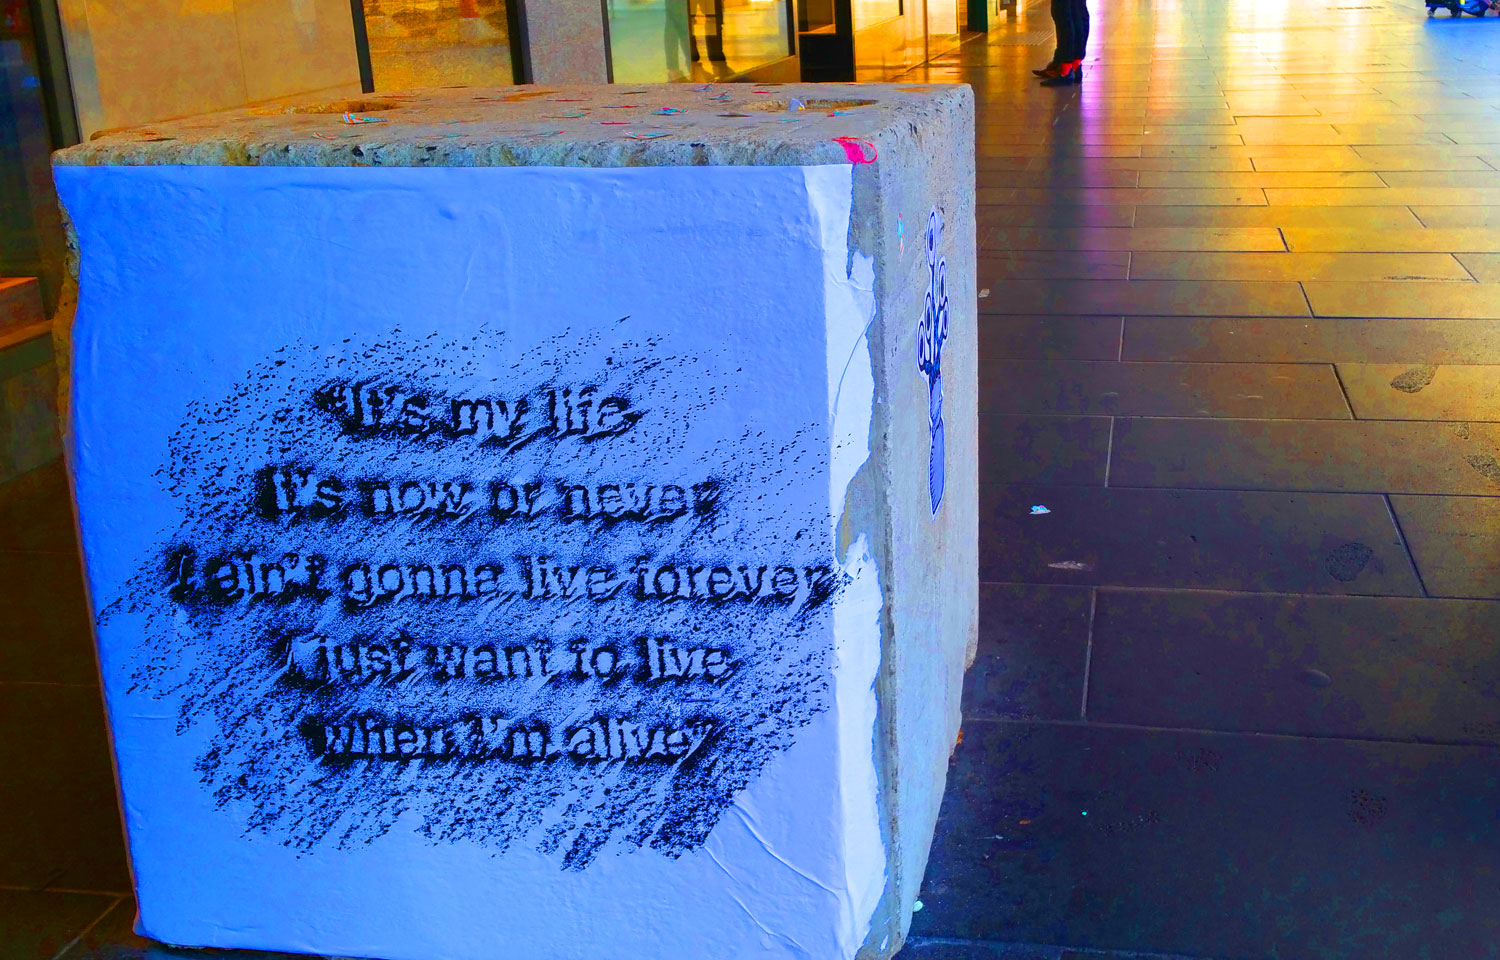 "It's my life
It's now or never
I ain't gonna live forever
I just want to live
when I'm alive"